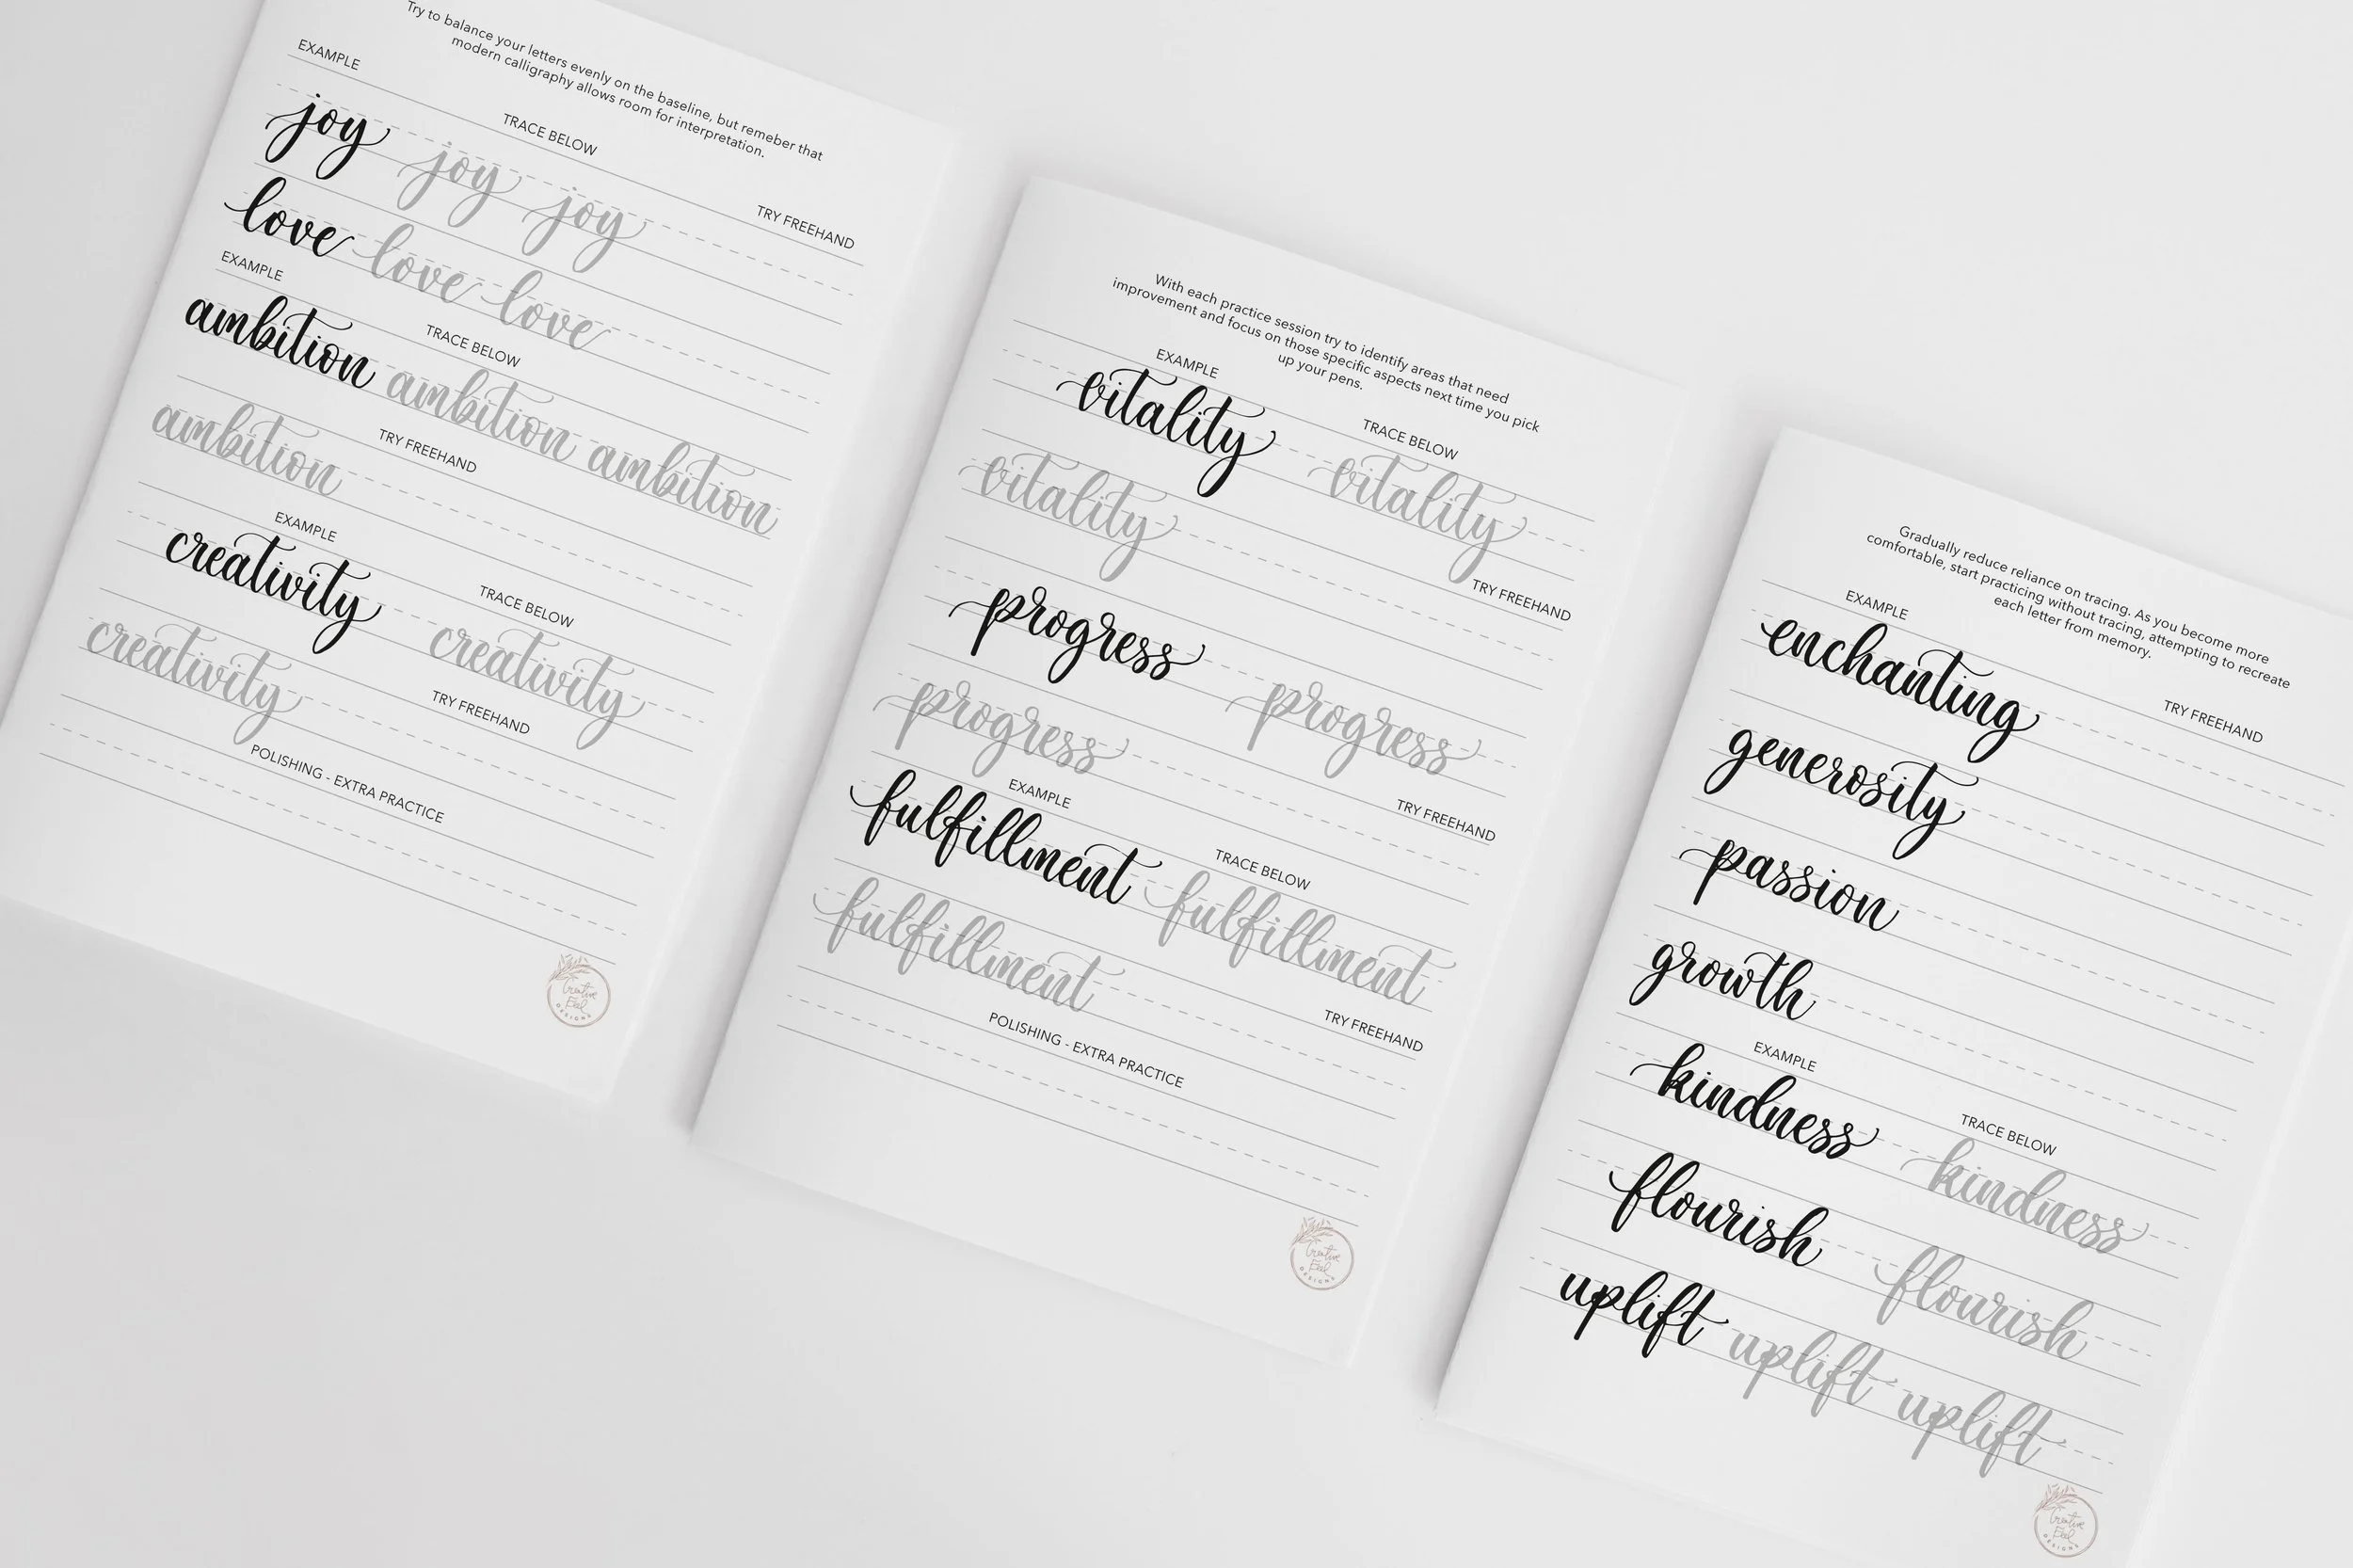 Try to balance your letters evenly on the baseline, but remeber that
modern calligraphy allows room for interpretation.
EXAMPLE
TRACE BELOW
TRY FREEHAND
joy joy joy
love love love
EXAMPLE
TRACE BELOW
ambition ambition ambition
ambition
TRY FREEHAND
EXAMPLE
TRACE BELOW
creativity creativity
creativity
TRY FREEHAND
POLISHING - EXTRA PRACTICE
Creative
Feel
DESIGNS
With each practice session try to identify areas that need
improvement and focus on those specific aspects next time you pick
up your pens.
EXAMPLE
TRACE BELOW
vitality vitality
vitality
TRY FREEHAND
progress progress
progress
TRY FREEHAND
EXAMPLE
TRACE BELOW
fulfillment fulfillment
fulfillment
TRY FREEHAND
POLISHING - EXTRA PRACTICE
Creative
Feel
DESIGNS
Gradually reduce reliance on tracing. As you become more
comfortable, start practicing without tracing, attempting to recreate
each letter from memory.
EXAMPLE
TRY FREEHAND
enchanting
generosity
passion
growth
EXAMPLE
TRACE BELOW
kindness kindness
flourish flourish
uplift uplift uplift
Creative
Feel
DESIGNS